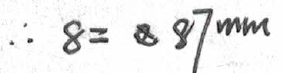 ∴ 8 = 87mm